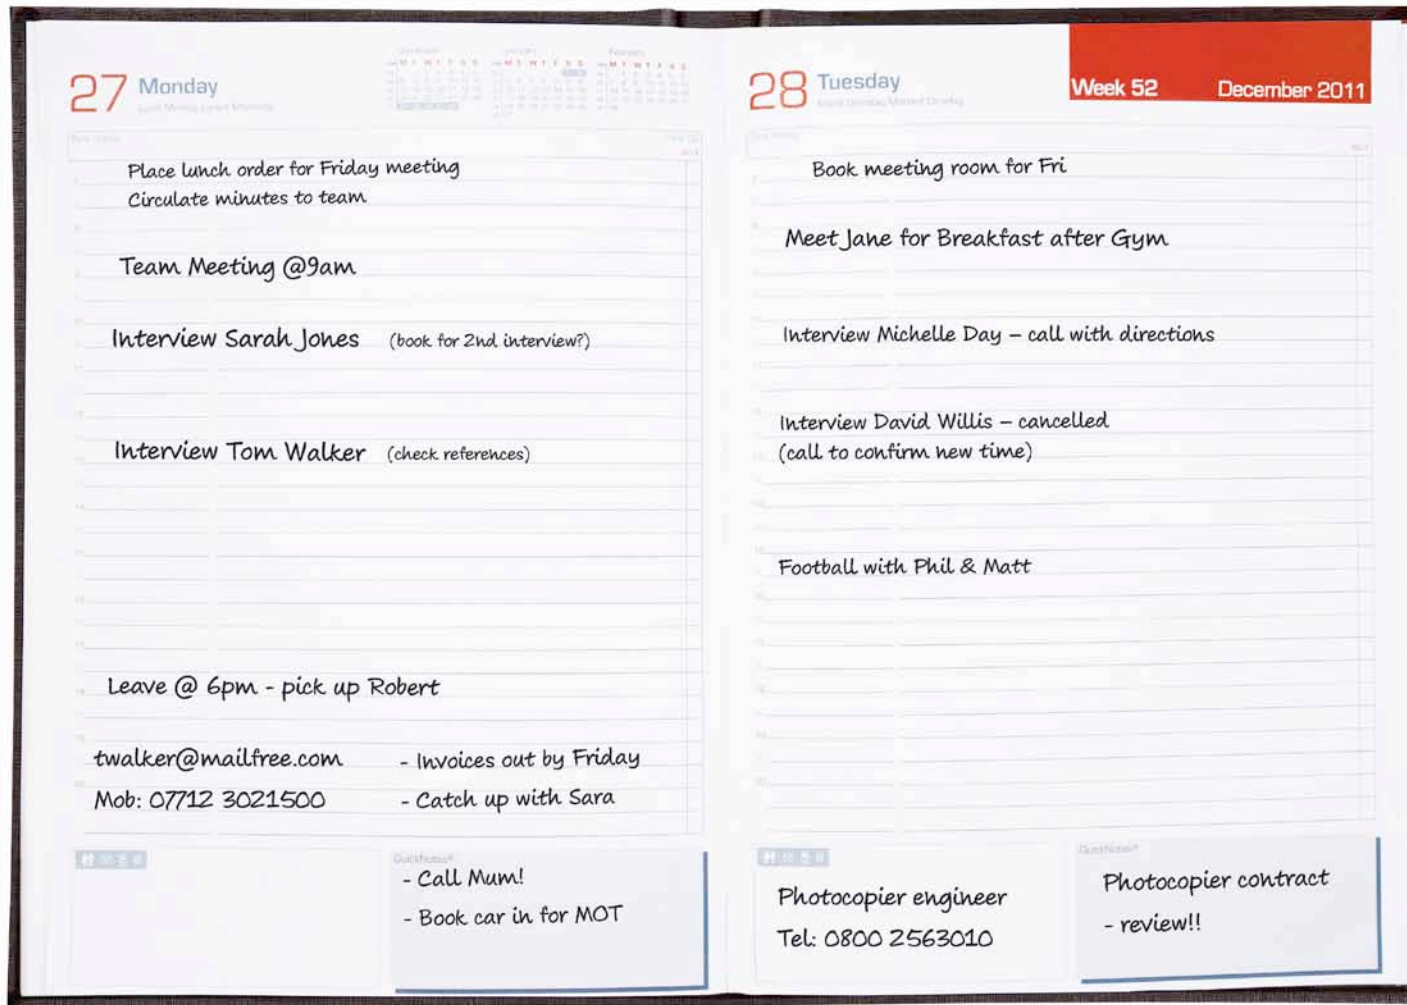 27 Monday
Place lunch order for Friday meeting
Circulate minutes to team
Team Meeting @9am
Interview Sarah Jones (book for 2nd interview?)
Interview Tom Walker (check references)
Leave @ 6pm - pick up Robert
twalker@mailfree.com - Invoices out by Friday
Mob: 07712 3021500 - Catch up with Sara
QuickNotes®
- Call Mum!
- Book car in for MOT
28 Tuesday
Week 52 December 2011
Book meeting room for Fri
Meet Jane for Breakfast after Gym
Interview Michelle Day – call with directions
Interview David Willis – cancelled
(call to confirm new time)
Football with Phil & Matt
Photocopier engineer
Tel: 0800 2563010
QuickNotes®
Photocopier contract
- review!!